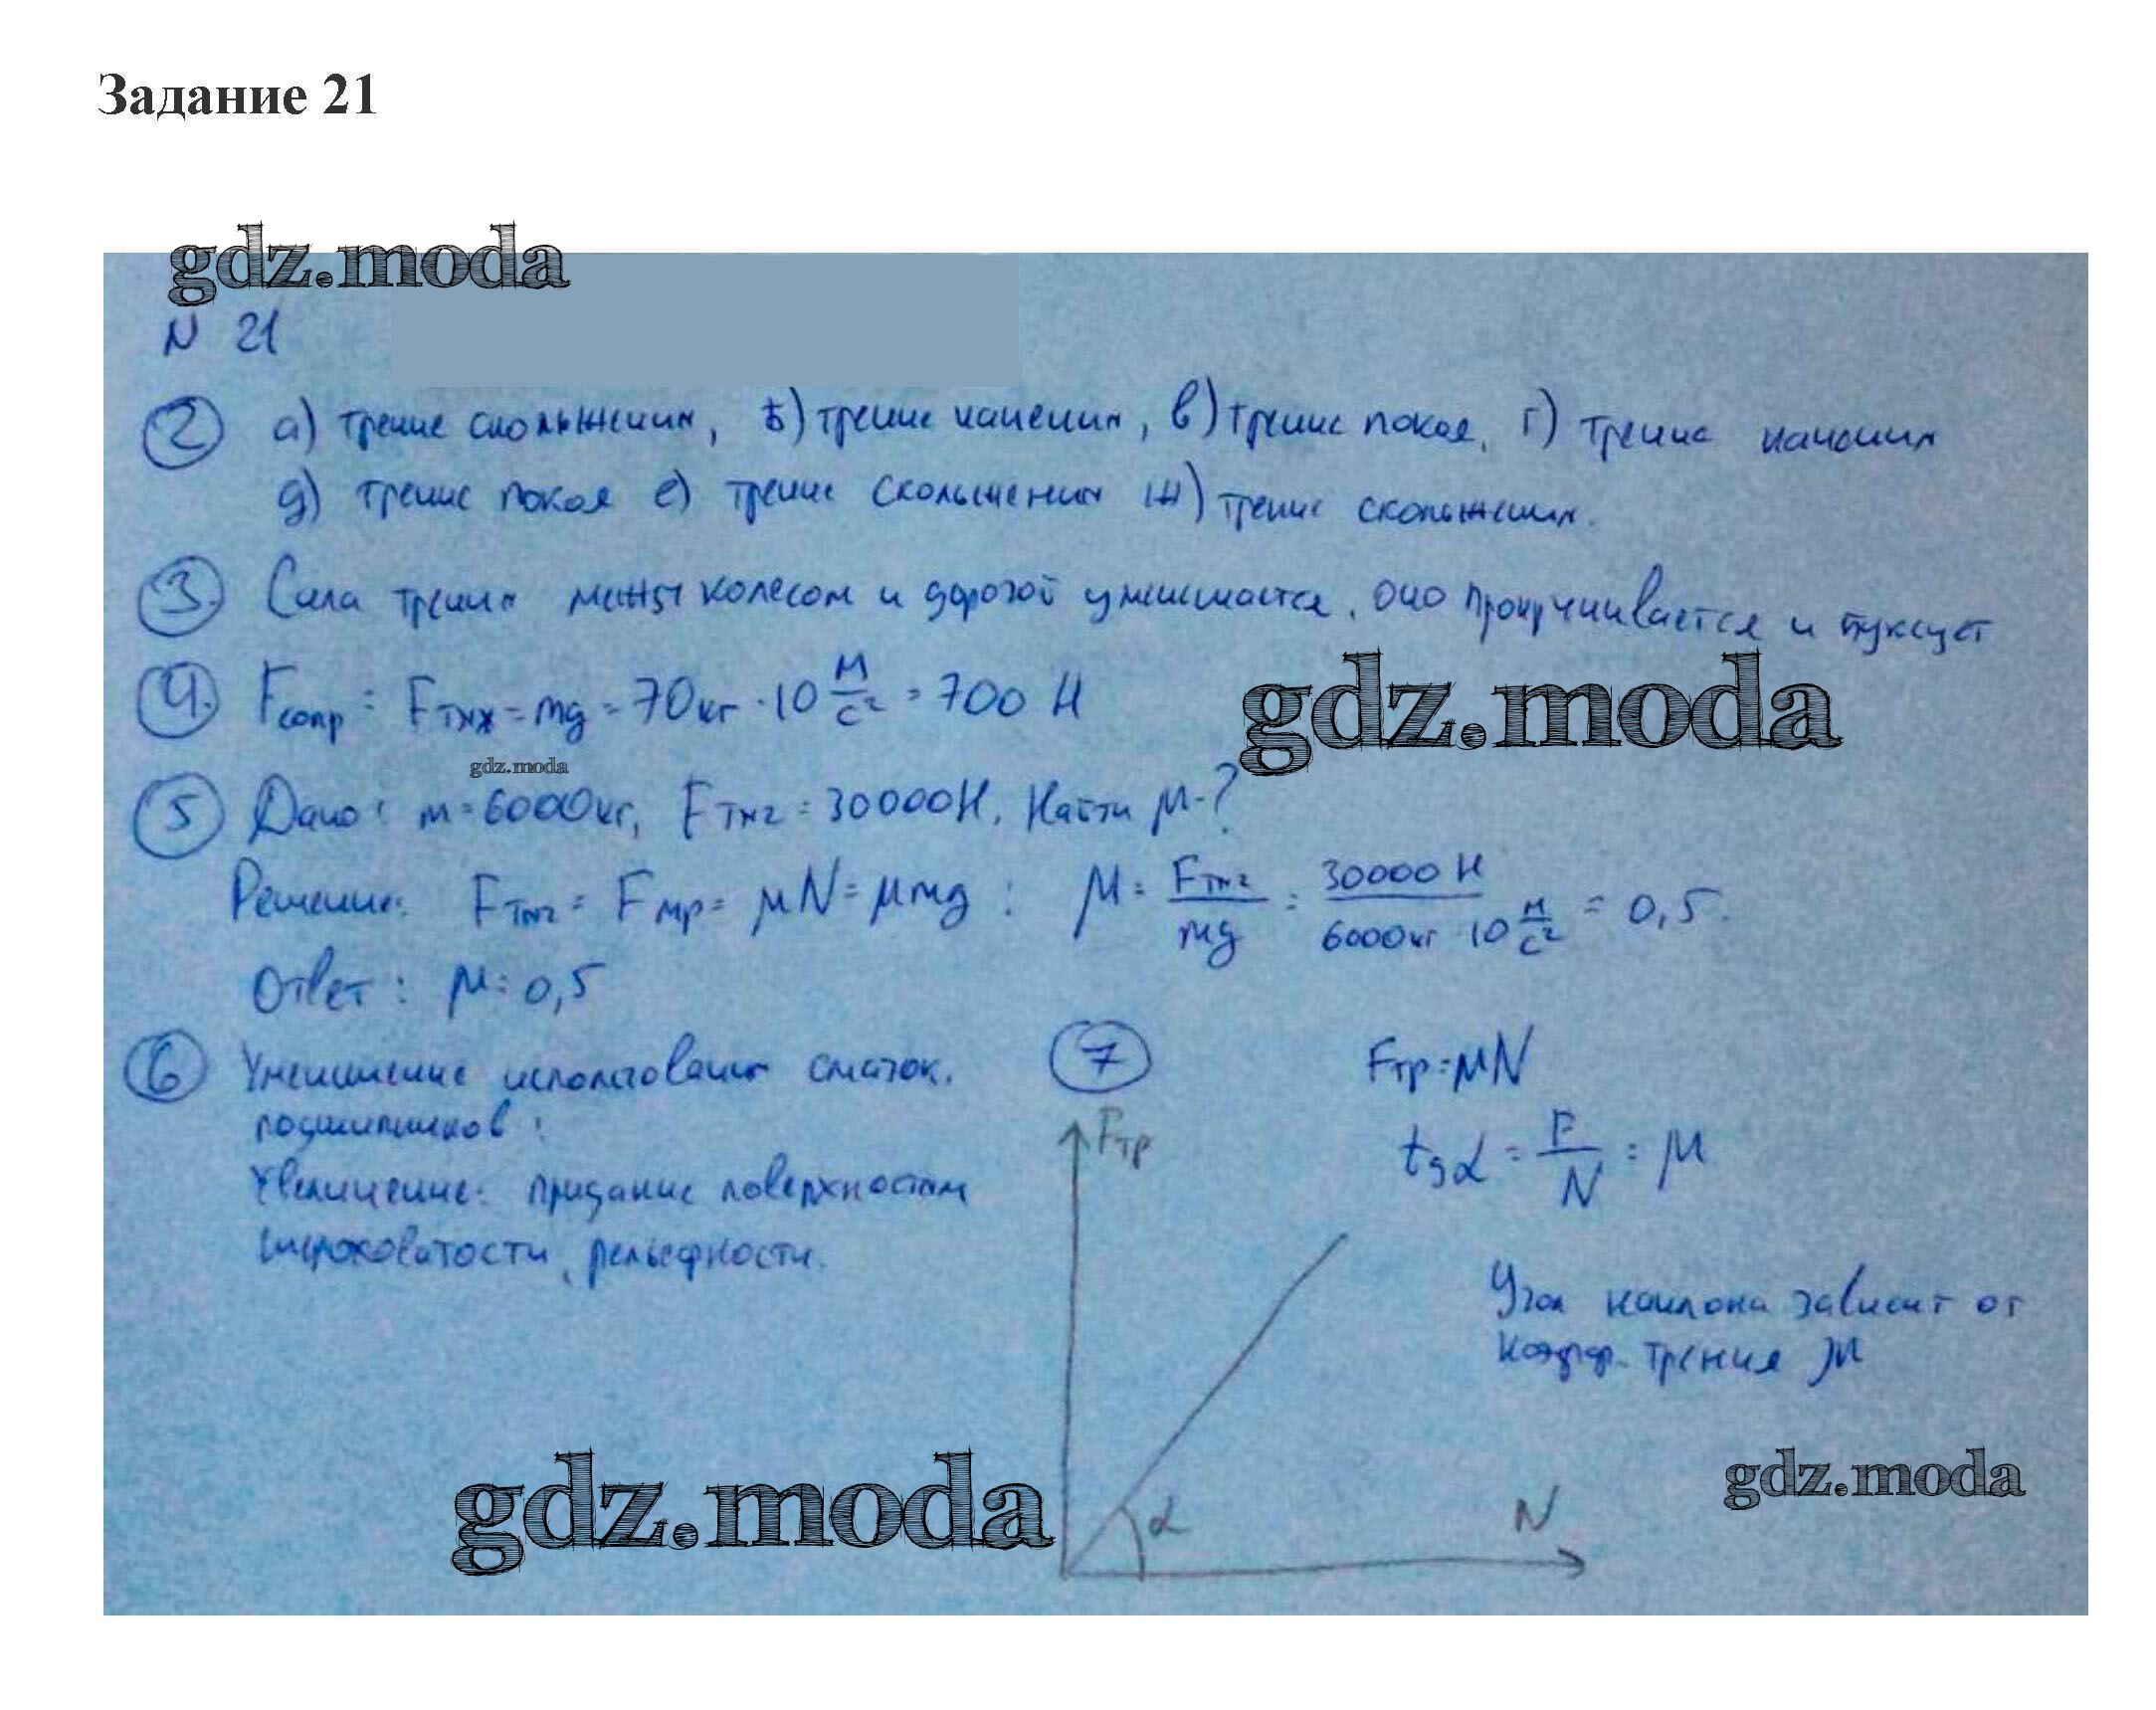 Задание 21
gdz.moda
N 21
2 а) трение скольжения, б) трение качения, в) трение покоя, г) трение качения
д) трение покоя е) трение скольжения ж) трение скольжения.
3. Сила трения между колесом и дорогой уменьшается, оно прокручивается и буксует
gdz.moda
4. Fсопр = Fтяж = mg = 70кг · 10 м/с² = 700 Н
gdz.moda
5 Дано: m = 6000кг, Fтяг = 30000Н. Найти μ-?
Решение: Fтяг = Fтр = μN = μmg ; μ = Fтяг/mg = 30000 Н/6000кг 10 м/с² = 0,5.
Ответ: μ = 0,5
6 Уменьшение использование смазок,
подшипников;
Увеличение: придание поверхностям
шероховатости, рельефности.
7 Fтр = μN
Fтр
tgα = F/N = μ
Угол наклона зависит от
коэфф. трения μ
gdz.moda
gdz.moda
α
N